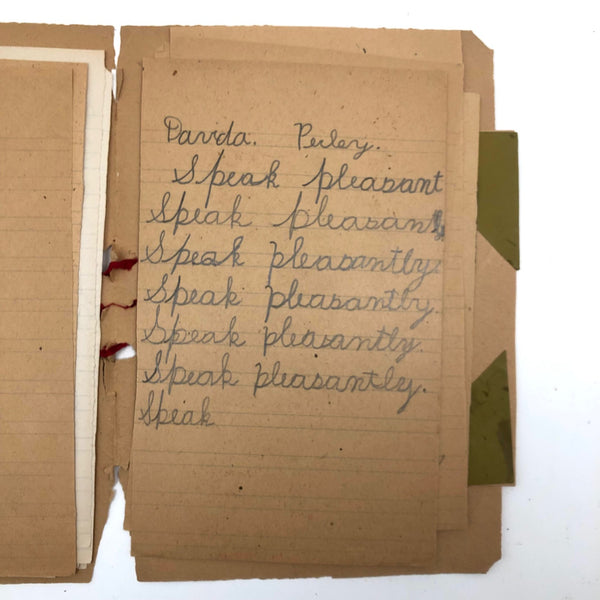 Davida. Perley.
Speak pleasant
Speak pleasantly
Speak pleasantly.
Speak pleasantly.
Speak pleasantly.
Speak pleasantly.
Speak